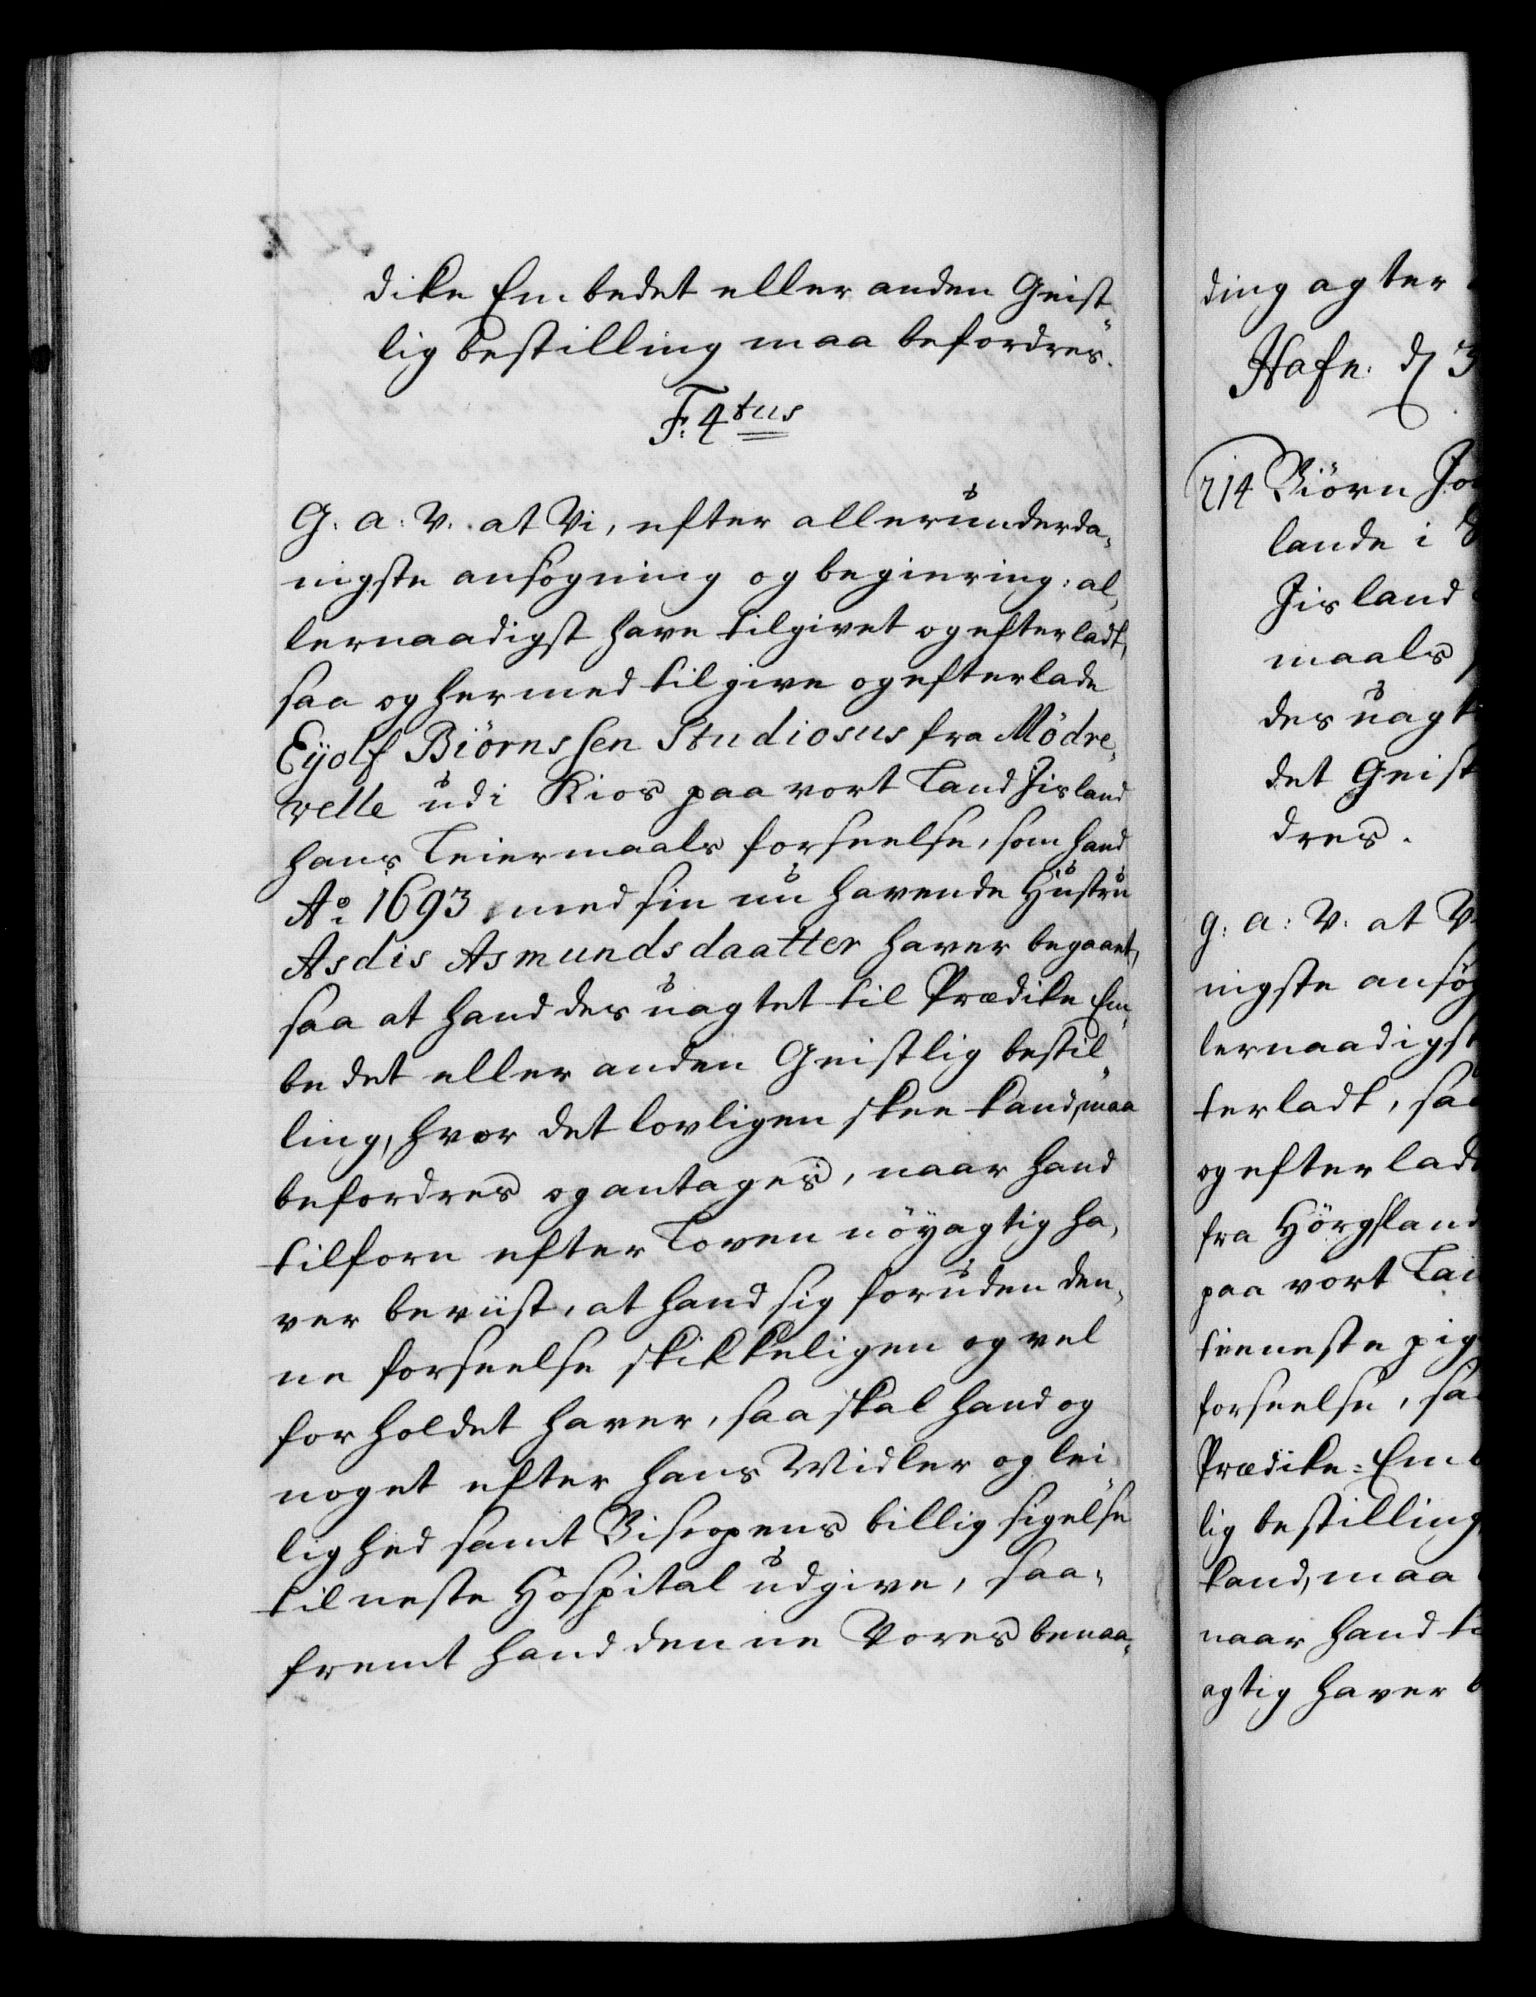 dike Embedet eller anden Geist-
lig bestilling maa befordres.
F: 4tus
G: a: V. at Vi, efter allerunderda-
nigste ansøgning og begiering: al-
lernaadigst have tilgivet og efterladt,
saa og hermed tilgive og efterlade
Eÿolf Biörnssen Studiosus fra Mödre-
velle udi Kios paa vort Land Jisland
hans Leiermaals forseelse, som hand
Ao. 1693 med sin nu havende Hustru
Asdis Asmundsdaatter haver begaaet,
saa at hand des uagtet til Prædike Em-
bedet eller anden Geistlig bestil-
ling, hvor det lovligen skee kand, maa
befordres og antages, naar hand
tilforn efter Loven nöyagtig ha-
ver beviist, at hand sig foruden den-
ne forseelse skikkeligen og vel
forholdet haver, saa skal hand og
noget efter hans Midler og lei-
lighed samt Biscopens billig sigelse
til neste Hospital udgive, saa-
fremt hand denne Vores benaa-
ding agter
Hafn. d. 3
214 Biörn Jo
lande i
Jisland
maals
des uagt
det Geist
dres.
g: a: V: at V
nigste ansög
lernaadigst
terladt, saa
og efterlad
fra Hörgsland
paa vort Lan
tieneste pig
forseelse, saa
Prædike-Emb
lig bestilling
kand, maa
naar hand ti
agtig haver b